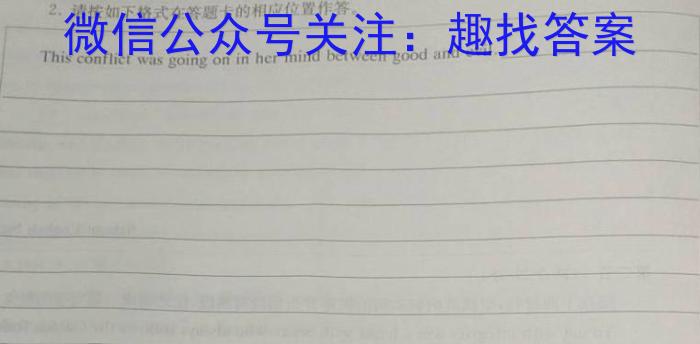 2. 请按如下格式在答题卡的相应位置作答。
微信公众号关注：趣找答案
This conflict was going on in her mind between good and evil.